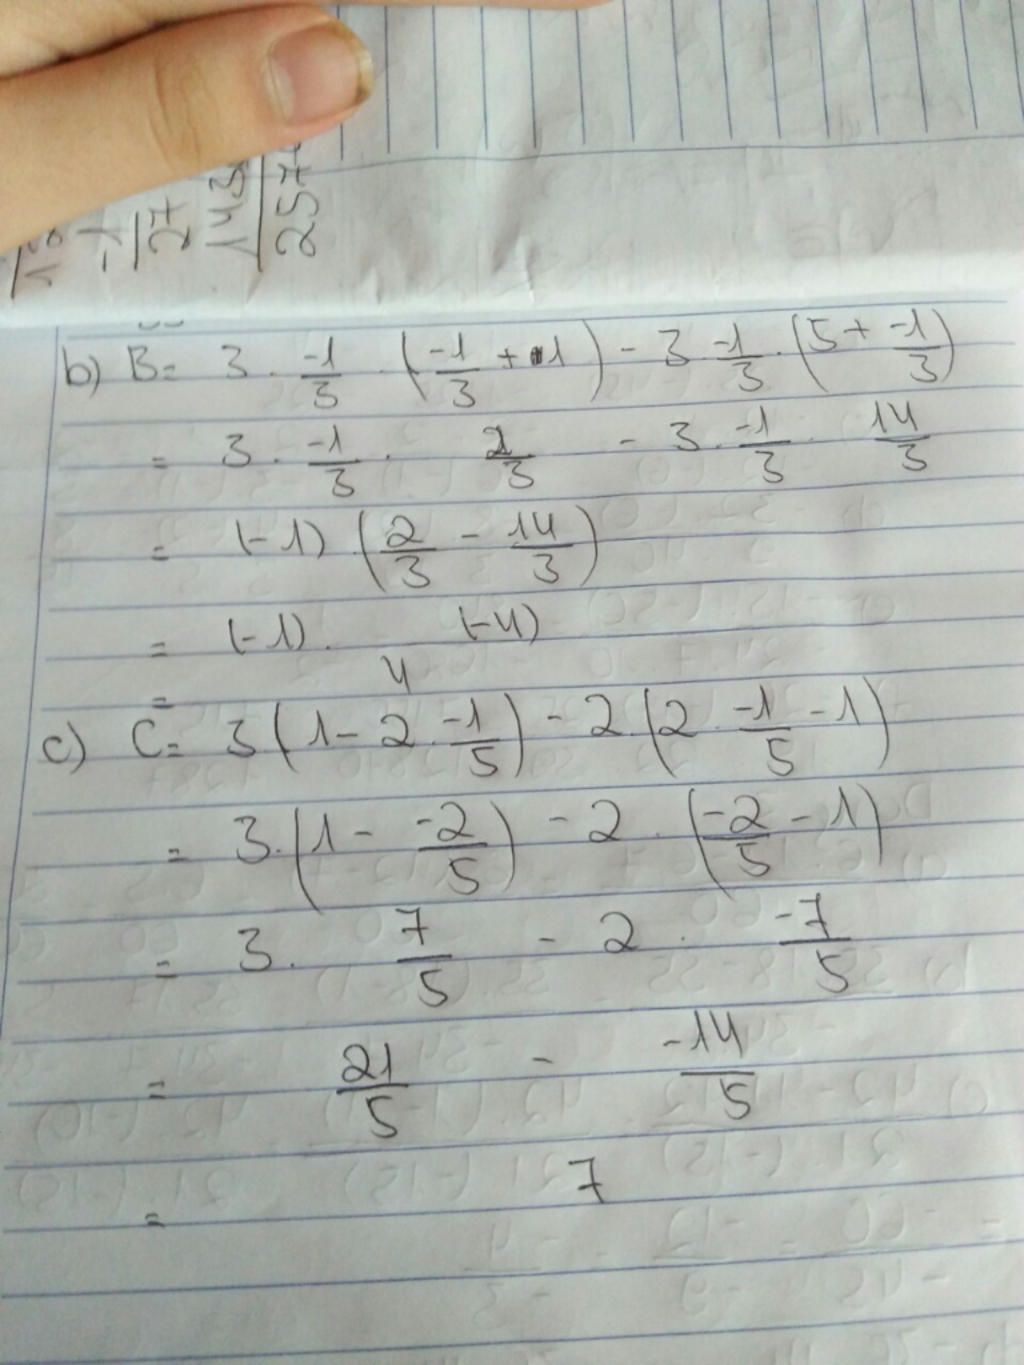 -1/27
143
257
b) B= 3 . -1/3 . (-1/3 + 1) - 3 . -1/3 . (5 + -1/3)
= 3 . -1/3 . 2/3 - 3 . -1/3 . 14/3
= (-1) (2/3 - 14/3)
= (-1) . (-4)
= 4
c) C= 3 (1 - 2 . -1/5) - 2 . (2 . -1/5 - 1)
= 3 . (1 - -2/5) - 2 . (-2/5 - 1)
= 3 . 7/5 - 2 . -7/5
= 21/5 - -14/5
= 7